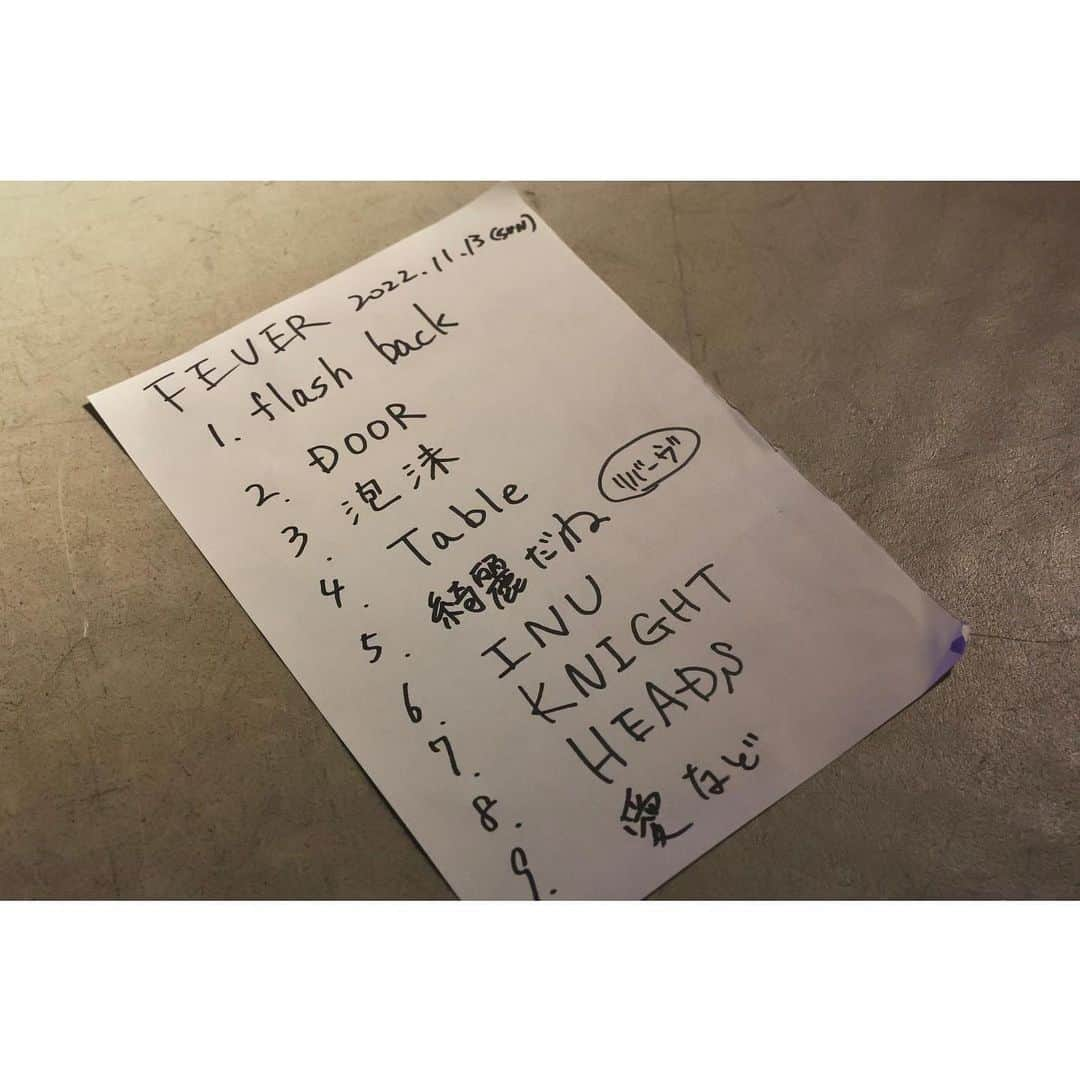 FEVER 2022.11.13(SUN)
1. flash back
2. DOOR
3. 泡沫
4. Table
5. 綺麗だね リバーヴ
6. INU
7. KNIGHT
8. HEADS
9. 愛など